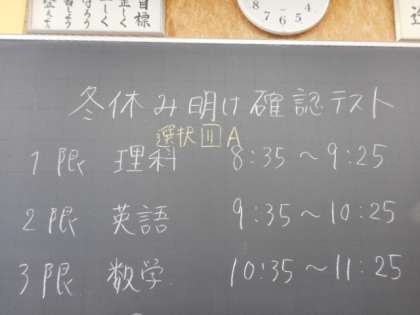 目標
8 7 6 5 4
冬休み明け確認テスト
選択 II A
1限 理科 8:35〜9:25
2限 英語 9:35〜10:25
3限 数学 10:35〜11:25